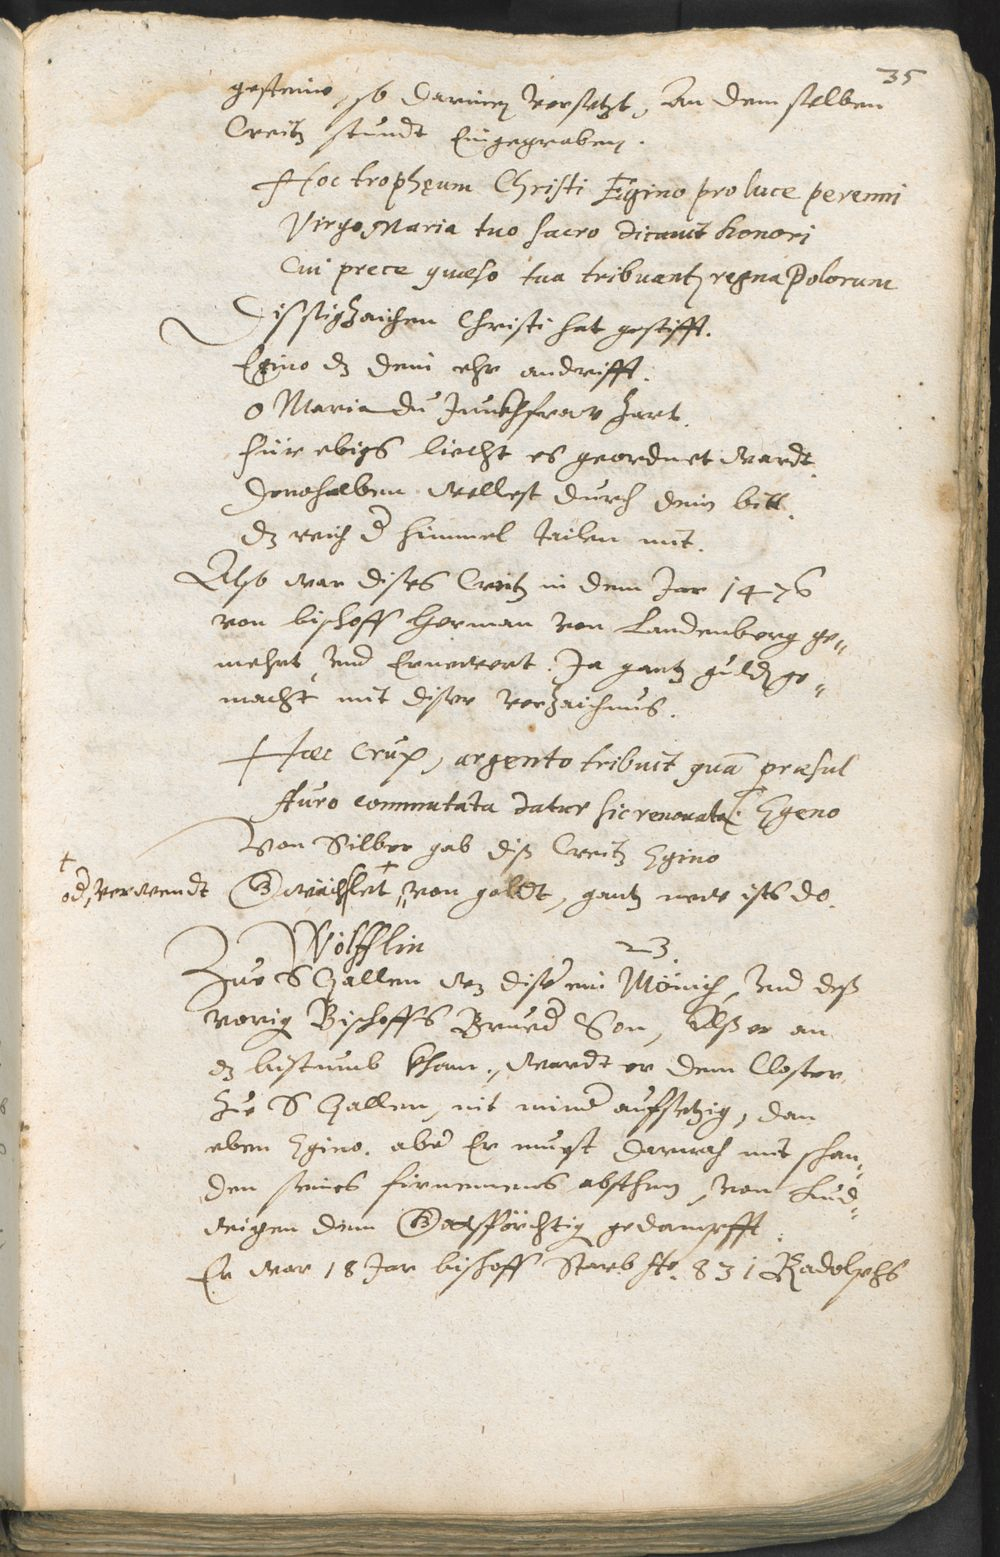 35
gestein, so darinen versetzt, An dem selben
Creitz stundt Eingegraben.
Hoc trophęum Christi Egino pro luce perenni
Virgo Maria tuo sacro dicavit honori
Cui prece quæso tua tribuant regna Polorum
Diß sigzaichen Christi hat gestifft.
Egino dz dein ehr andrifft.
o Maria du Junckhfraw zart.
für ebigs liecht es geordnet wardt.
Derohalben wellest durch dein bitt.
dz reich d himmel tailen mit.
Also war dises Creitz in dem Jar 1476
von bischoff Herman von Landenberg ge„
mehrt, und Ernewert. Ja gantz guldin ge„
macht mit diser verzaichnus.
Hæc crux, argento tribuit quā præsul
Auro commutata datur sic renouata. Egeno
Von Silber gab diß Creitz Egino
† od, verwendt
Gwächslet † von goldt, gantz new ists do.
Wolfflin 23.
Zue S Gallen wz diser ein Mönich, und deß
vorig Bischoffs Brued Son, Alß er an
dz bistumb kham, wardt er dem Closter
Zue S Gallen, nit mind aufsetzig, dan
eben Egino. aber Er muest darnach mit schan„
den seines firnemens absthen, von Lud„
wigen dem Gottsförchtig gedampfft.
Er war 18 Jar bischoff Starb Ao. 831 Radolphs